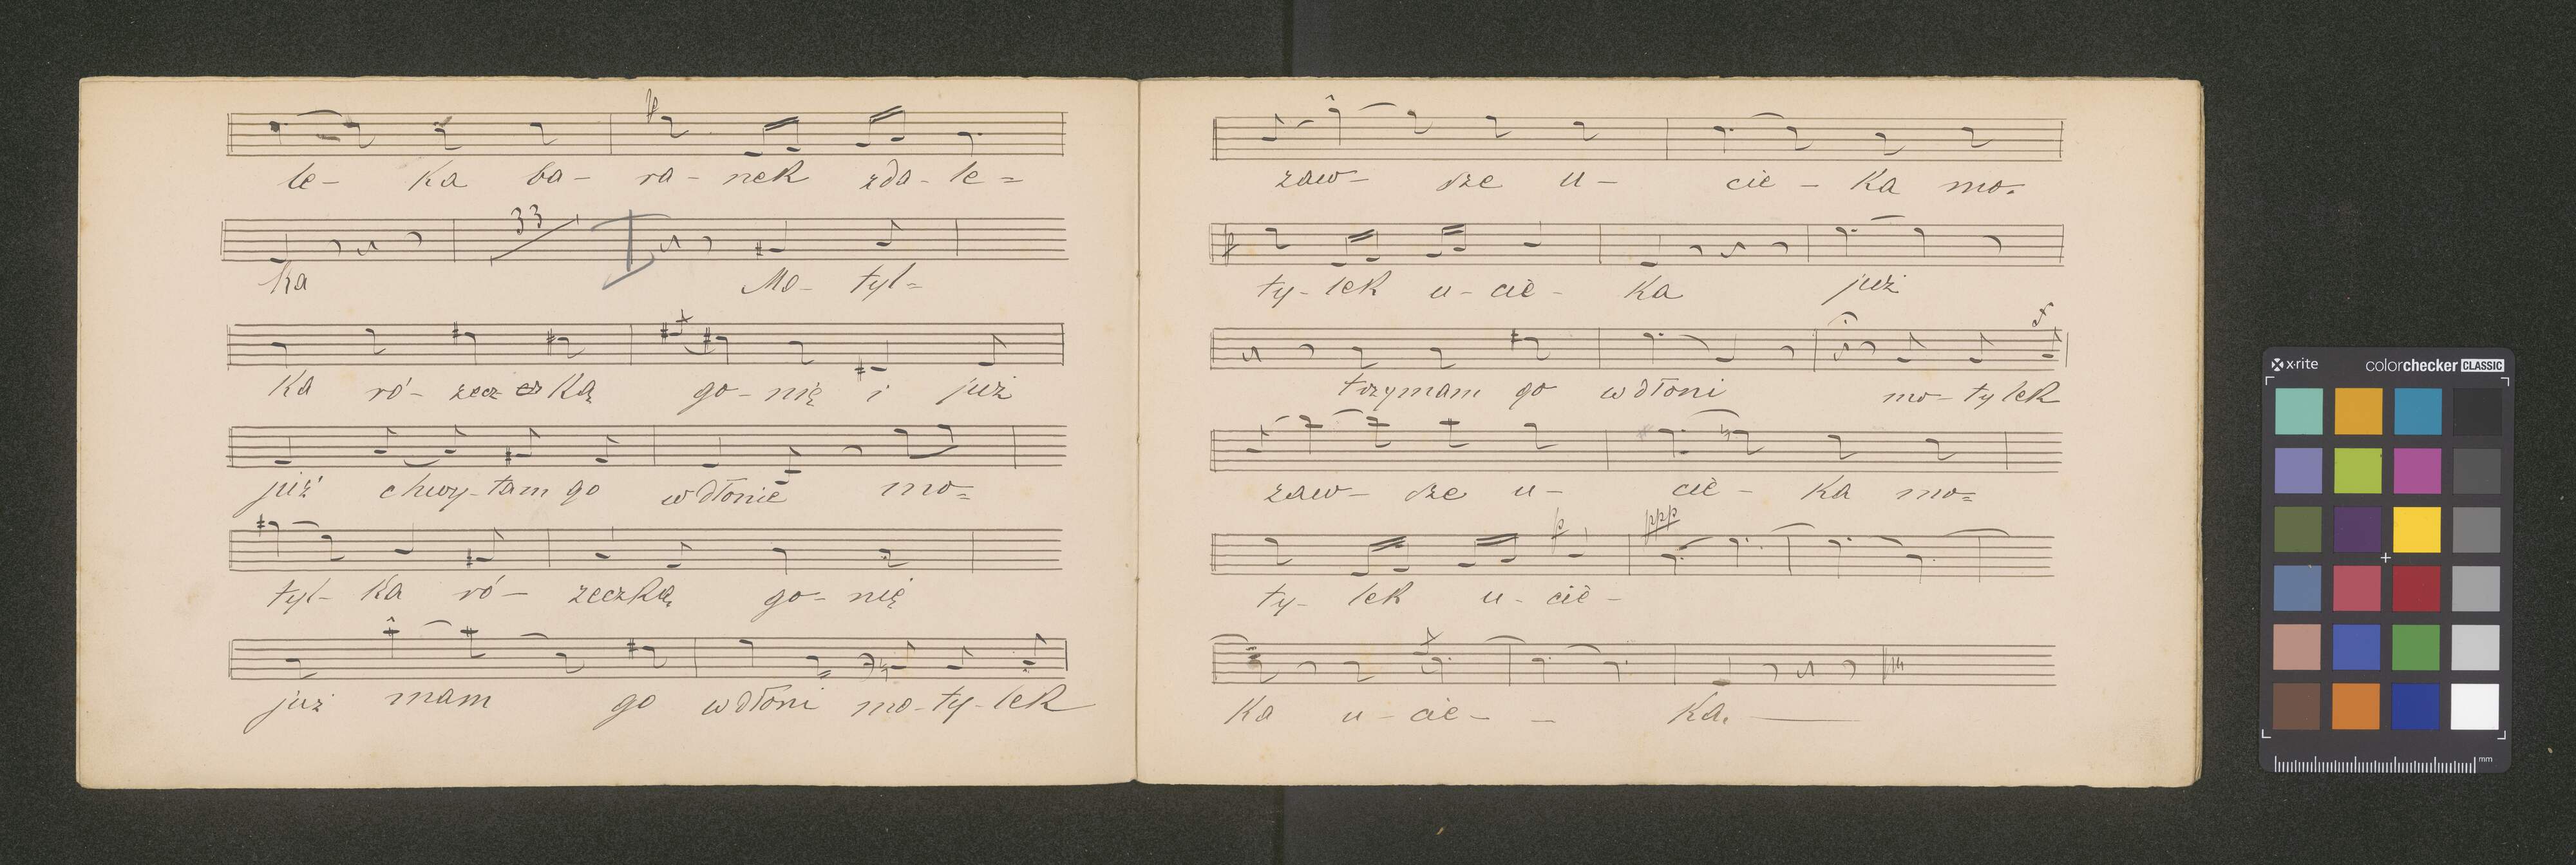 le- ka ba- ra- nek zda- le=
33
ka Mo- tyl=
ka ró- zecz ką go- nię i już
już chwy- tam go w dłonie mo=
tyl- ka ró- zeczką go- nię
już mam go w dłoni mo- ty- lek
zaw- sze u- cie- ka mo-
ty- lek u- cie- ka już
f
trzymam go w dłoni mo- ty lek
zaw- sze u- cie- ka mo=
p ppp
ty- lek u- cie-
ka u- cie- - ka.
x-rite colorchecker CLASSIC
mm